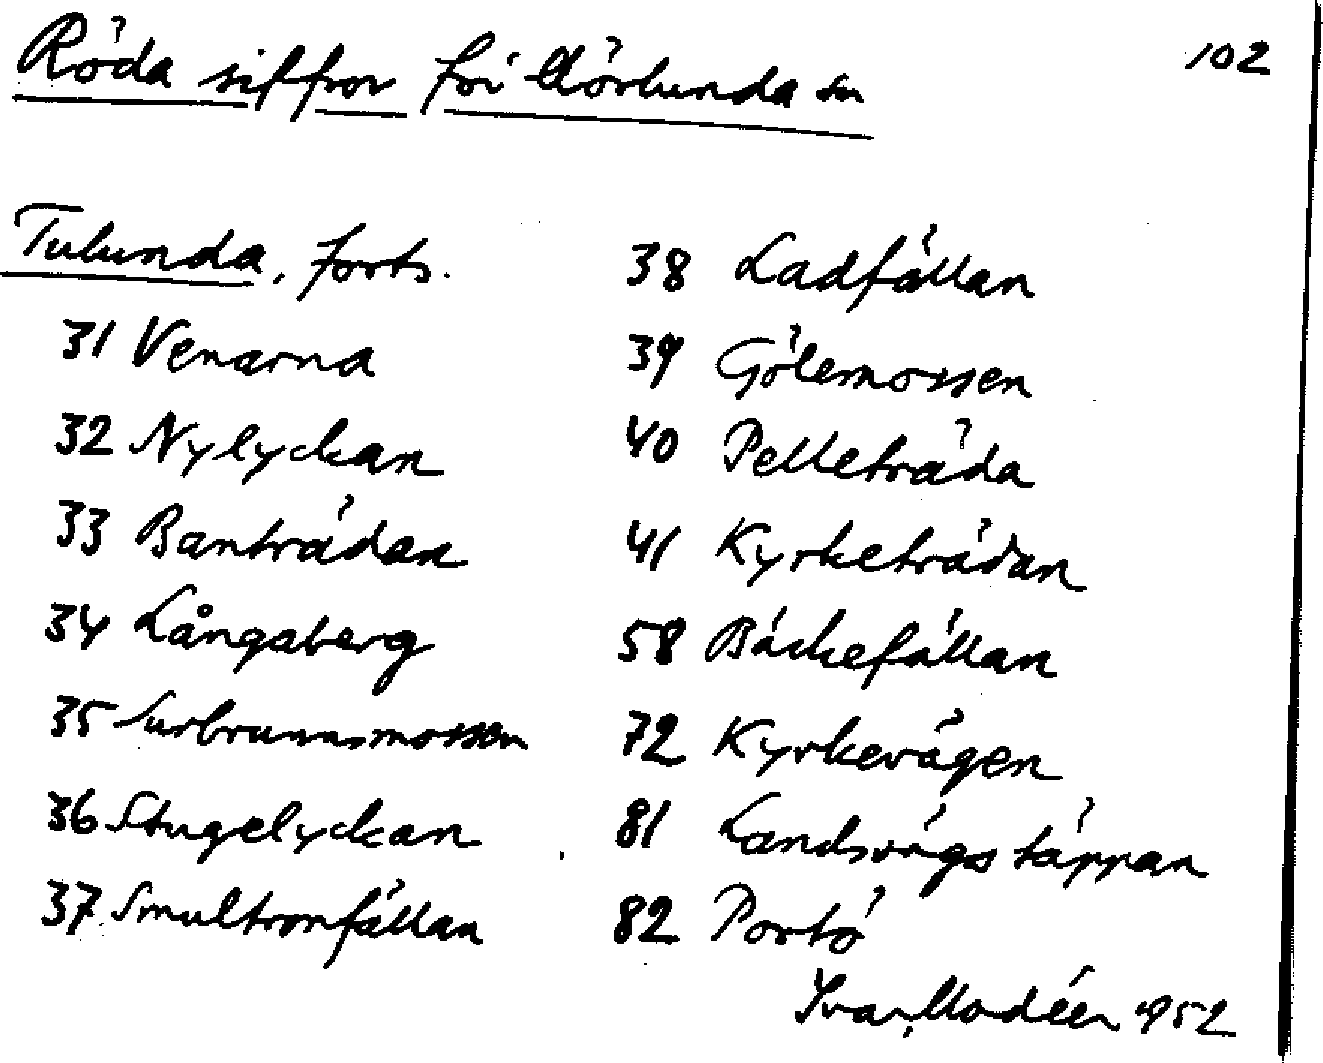 Röda siffror för Mörlunda sn
102
Tulunda, forts.
31 Venarna
32 Nylyckan
33 Banträdan
34 Långaberg
35 Surbrunnsmossen
36 Stugelyckan
37 Smultronfällan
38 Ladfällan
39 Gölemossen
40 Pelleträda
41 Kyrketrädan
58 Bäckefällan
72 Kyrkevägen
81 Landsvägstäppan
82 Portö
Ivar Modéer 1952